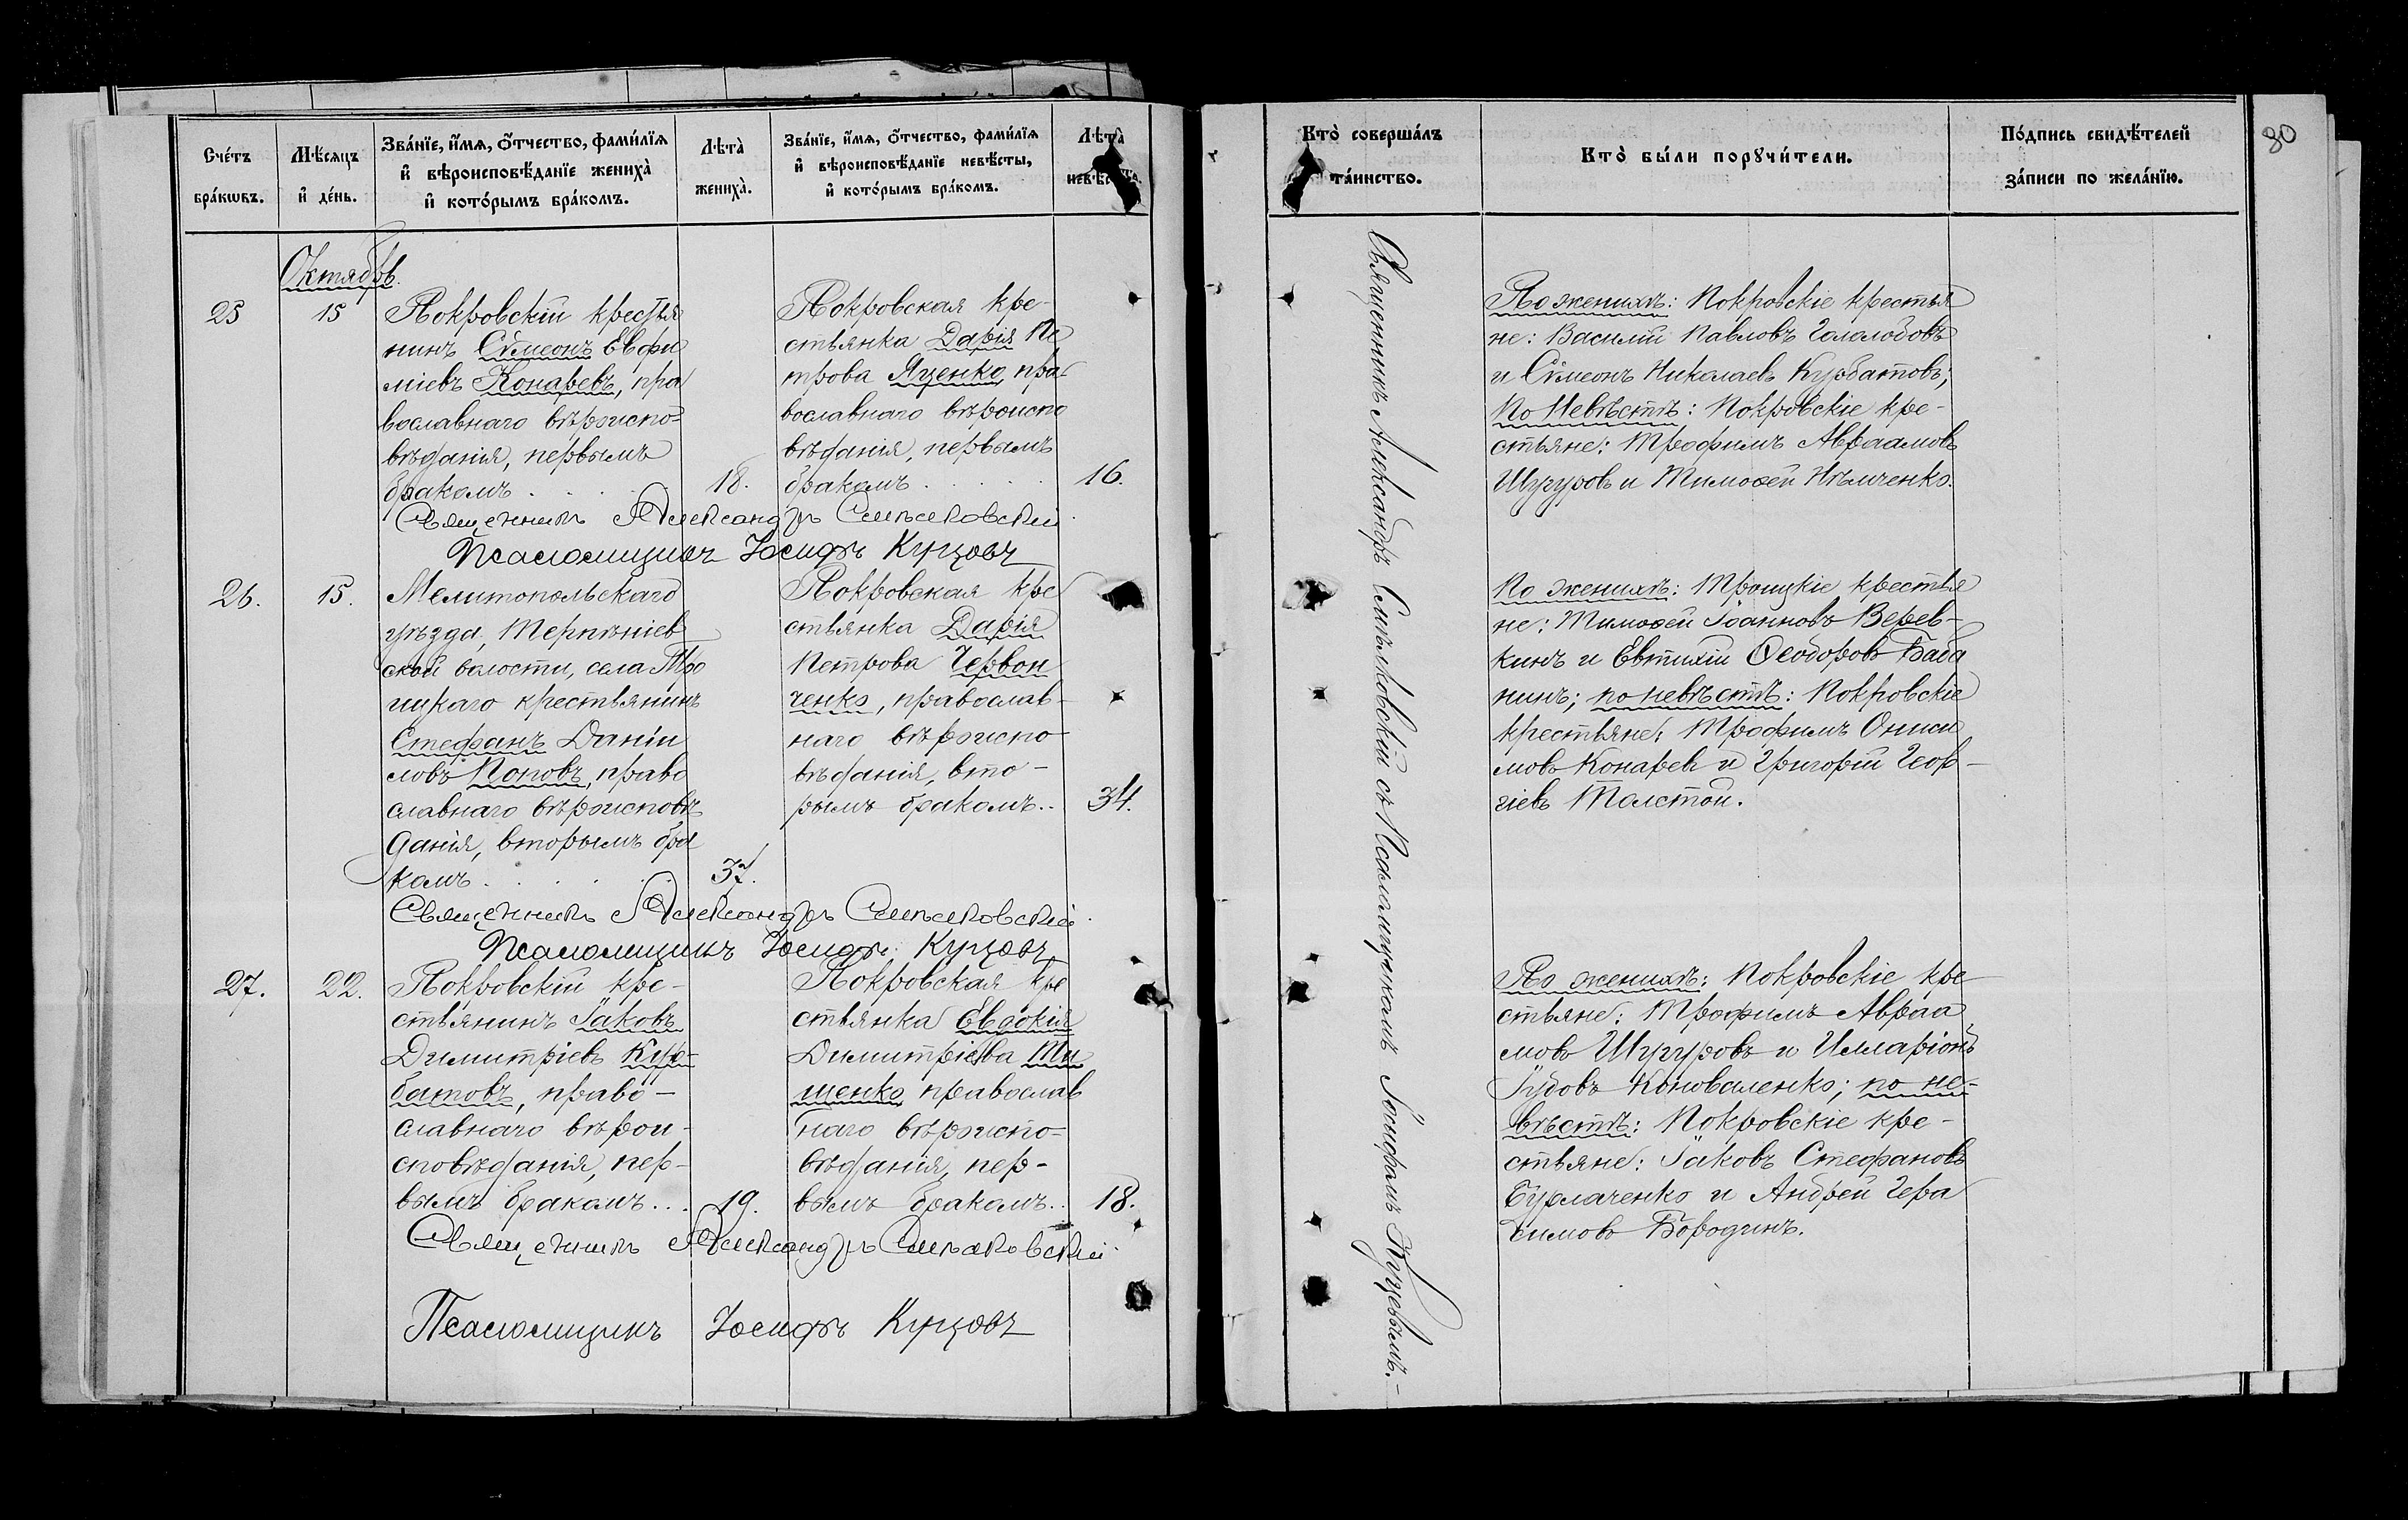 Счетъ браковъ.
Мѣсяцъ и день.
Званіе, имя, отчество, фамилія и вѣроисповѣданіе жениха и которымъ бракомъ.
Лѣта жениха.
Званіе, имя, отчество, фамилія и вѣроисповѣданіе невѣсты, и которымъ бракомъ.
Лѣта
Кто совершалъ таинство.
Кто были поручители.
Подпись свидѣтелей записи по желанію.
30
Октябрь.
25
15
Покровскій крестья
нинъ Сѵмеонъ Евѳи
міевъ Конаревъ, пра
вославнаго вѣроиспо-
вѣданія, первымъ
бракомъ . . . . .
18.
Покровская кре-
стьянка Дарія Пе
трова Яценко, пра-
вославнаго вѣроиспо
вѣданія, первымъ
бракомъ . . . . .
16.
Священникъ Александръ Смѣлковскій.
Псаломщикъ Іосифъ Курцовъ
26.
15.
Мелитопольскаго
уѣзда, Терпѣніев
ской волости, села Тро
ицкаго крестьянинъ
Стефанъ Даніи
ловъ Поповъ, право
славнаго вѣроисповѣ
данія, вторымъ бра
комъ . . . . .
37.
Покровская кре
стьянка Дарія
Петрова Червон
ченко, православ-
наго вѣроиспо-
вѣданія, вто-
рымъ бракомъ..
34.
Священникъ Александръ Смѣлковскій.
Псаломщикъ Іосифъ Курцовъ
27.
22.
Покровскій кре-
стьянинъ Іаковъ
Димитріевъ Кур-
батовъ, право-
славнаго вѣрои-
сповѣданія, пер-
вымъ бракомъ...
19.
Покровская кре
стьянка Евдокія
Димитріева Ти
шенко православ
наго вѣроиспо-
вѣданія, пер-
вымъ бракомъ..
18.
Священникъ Александръ Смѣлковскій.
Псаломщикъ Іосифъ Курцовъ
Священникъ Александръ Смѣлковскій съ Псаломщикомъ Іосифомъ Курцевымъ.-
По женихѣ: Покровскіе крестья
не: Василій Павловъ Гололобовъ
и Сѵмеонъ Николаевъ Курбатовъ;
По Невѣстѣ: Покровскіе кре-
стьяне: Трофимъ Авраамовъ
Шугуровъ и Тимоѳей Нѣмченко.
По женихѣ: Троицкіе крестья
не: Тимоѳей Іоанновъ Верев-
кинъ и Евтихій Ѳеодоровъ Баба
нинъ; по невѣстѣ: Покровскіе
крестьяне: Трофимъ Ониси
мовъ Конаревъ и Григорій Геор-
гіевъ Толстой.
По женихѣ: Покровскіе кре
стьяне: Трофимъ Авраа
мовъ Шугуровъ и Илларіонъ
Коноваленко; по не-
вѣстѣ: Покровскіе кре-
стьяне: Іаковъ Стефановъ
Бурлаченко и Андрей Гера
симовъ Бородинъ.